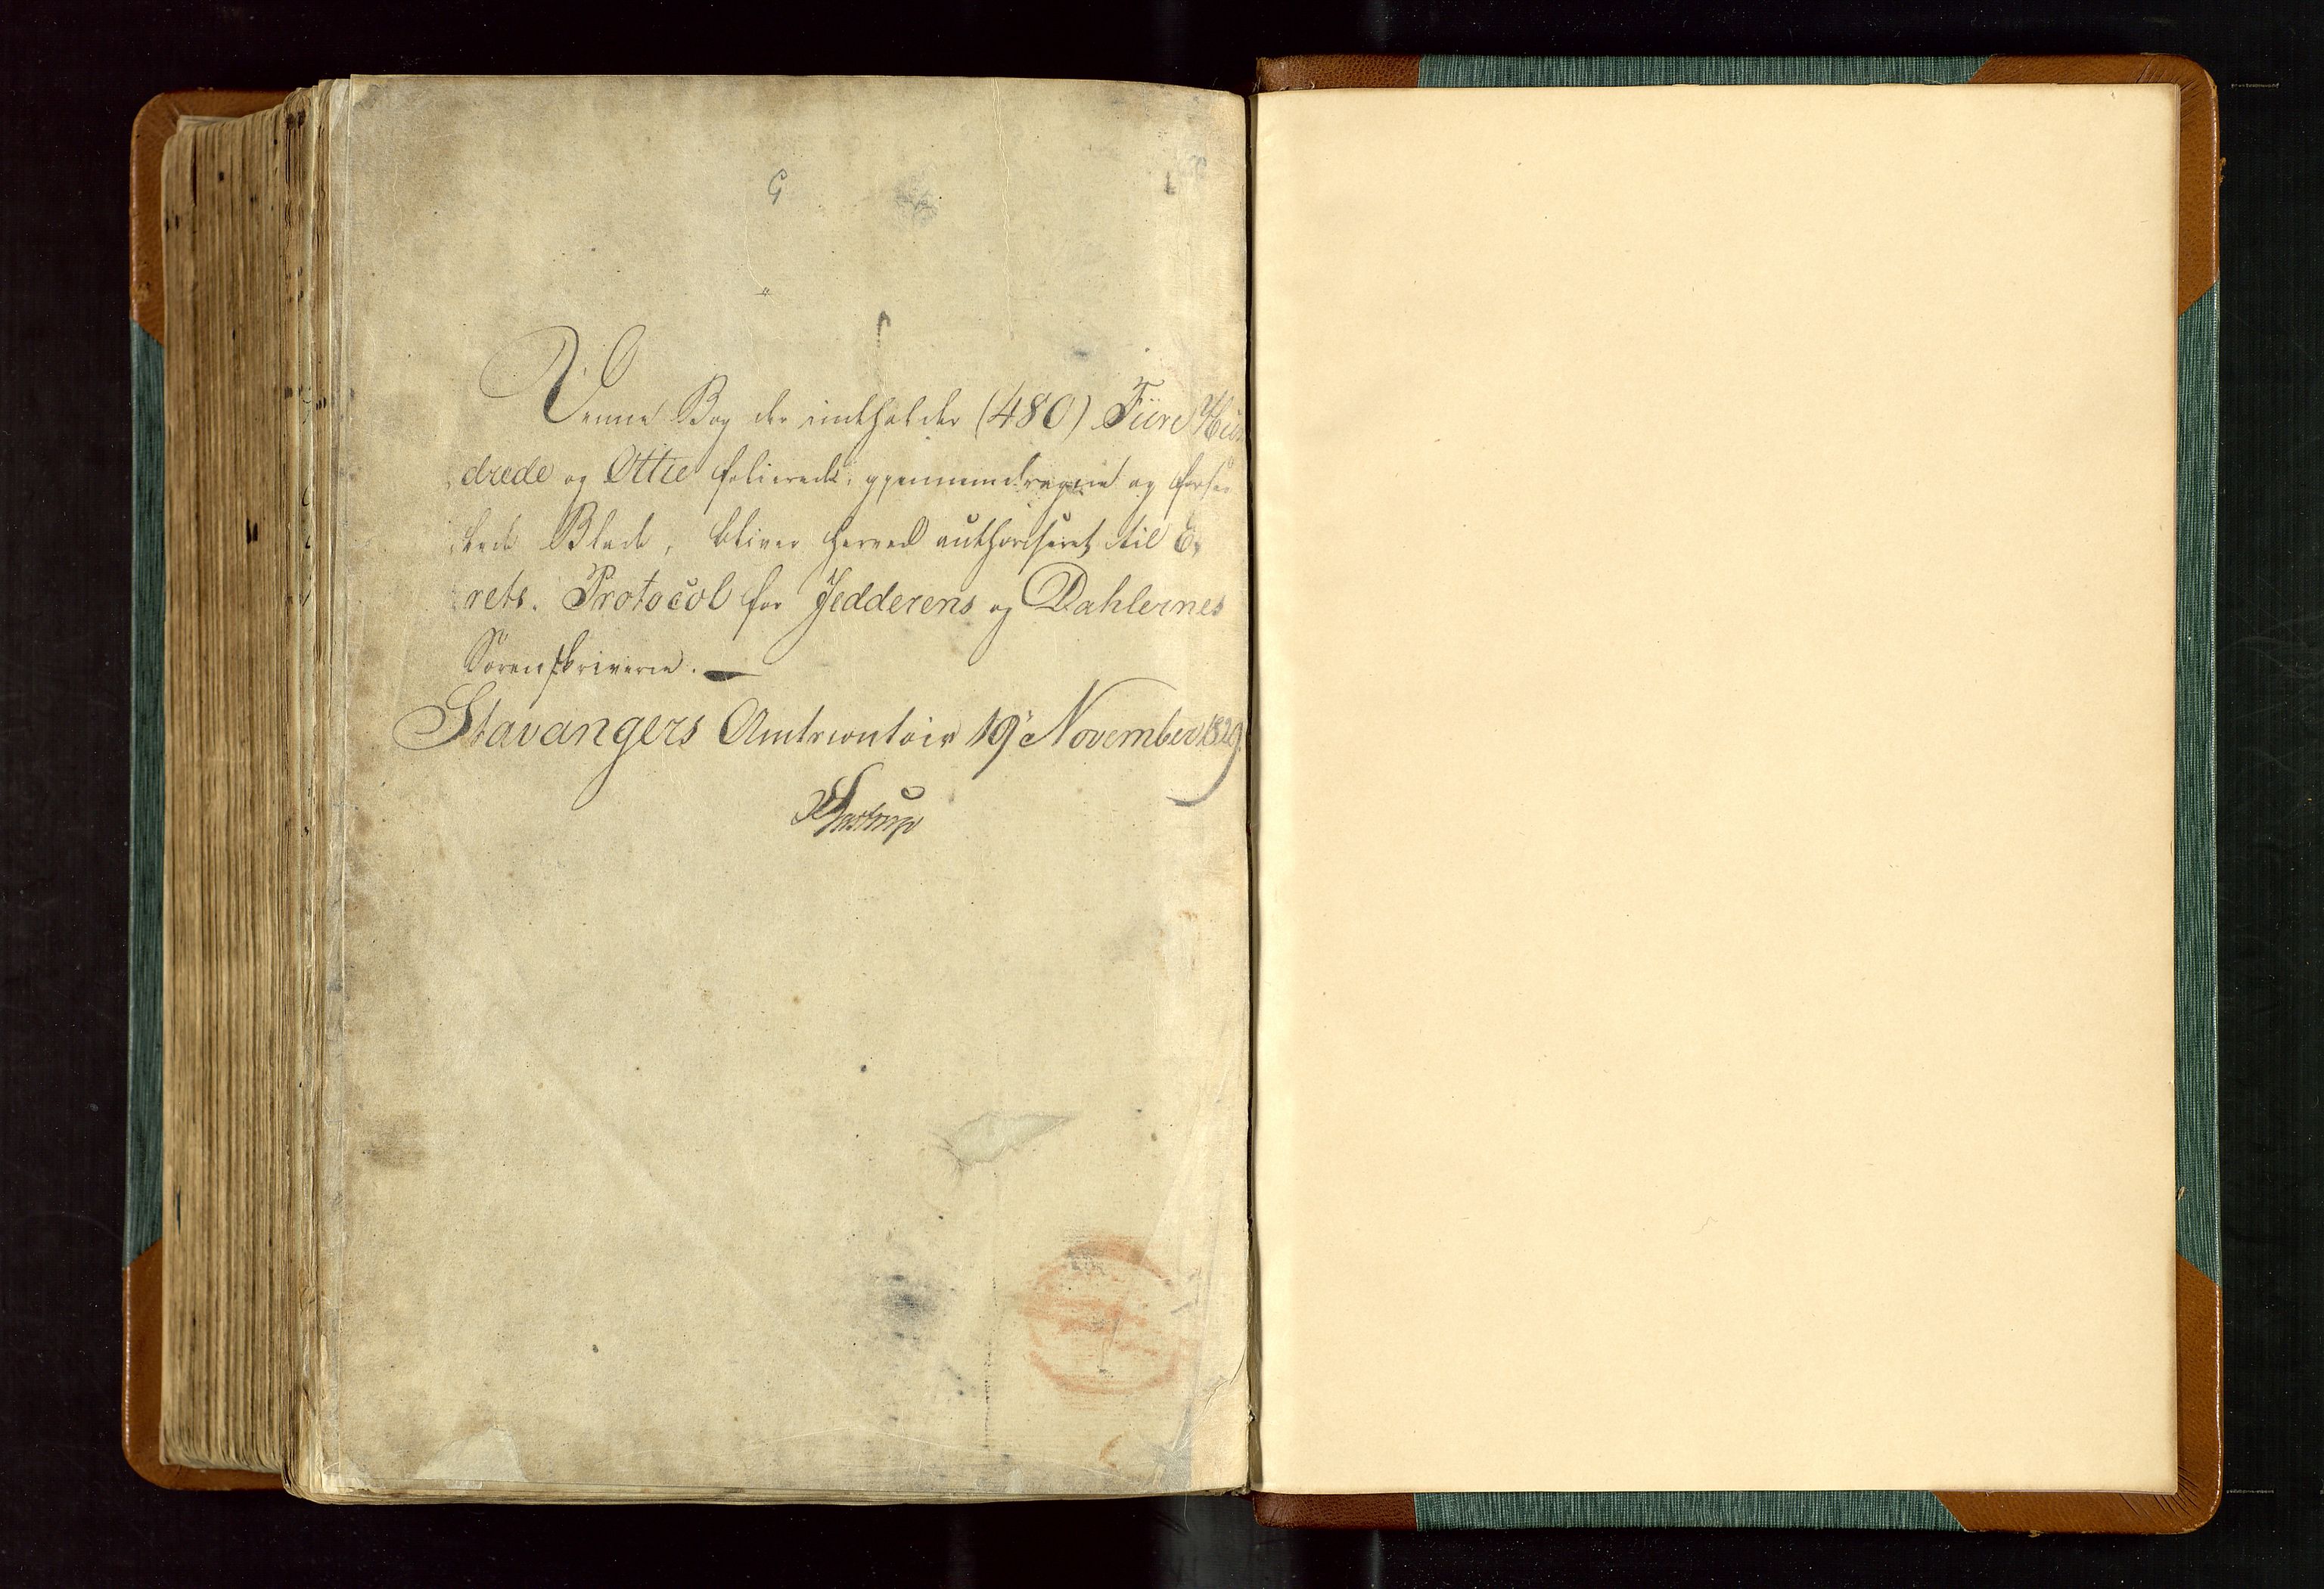 Denne Bog der indeholder (480) Fiire Hun
drede og Ottie folierede, gjennemdragne og forseg
lede Blade, bliver herved authoriseret til Ex
rets. Protocol for Jedderens og Dahlernes
Sorenskriverie.
Stavangers Amtscontoir 19de November 1829.